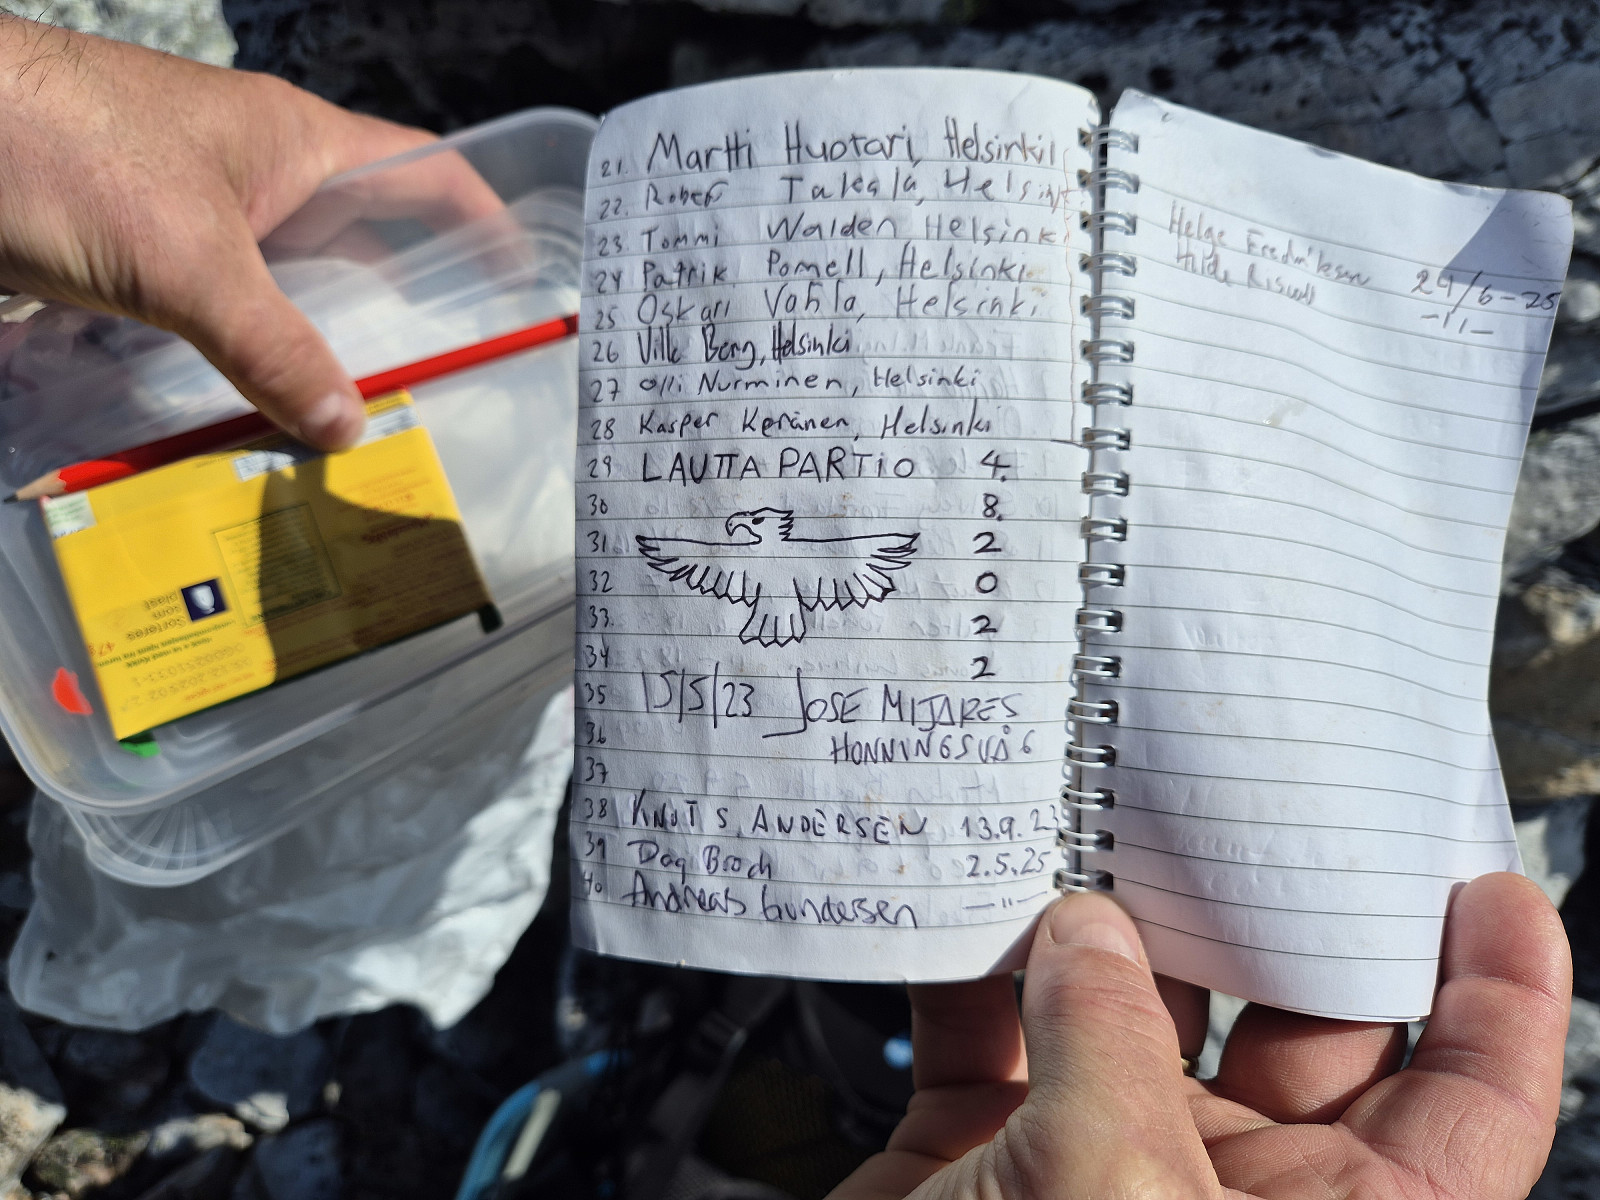 21. Martti Huotari, Helsinki
22. Robert Takala, Helsinki
23. Tommi Walden Helsinki
24 Patrik Pomell, Helsinki
25 Oskari Vahla, Helsinki
26 Ville Berg, Helsinki
27 Olli Nurminen, Helsinki
28 Kasper Keränen, Helsinki
29 LAUTTA PARTIO 4.
30 8.
31 2
32 0
33. 2
34 2
35 15/5/23 JOSE MIJARES
36 HONNINGSVÅG
37
38 KNUT S. ANDERSEN 13.9.23
39 Dag Broch 2.5.25
40 Andreas Gundersen —"—
Helge Fredriksen 29/6-25
Hilde —"—
Sorteres
som
plast